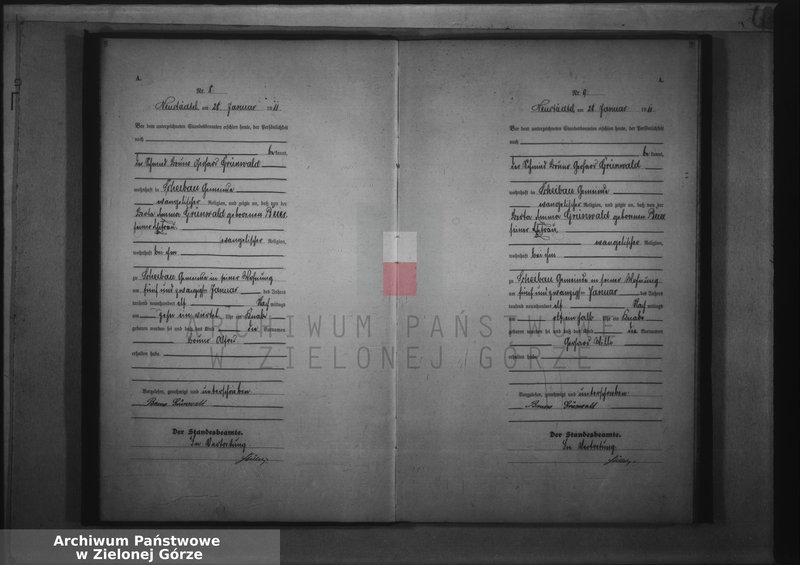 A.
Nr. 8
Neustädtel, am 28. Januar 1911
Vor dem unterzeichneten Standesbeamten erschien heute, der Persönlichkeit
nach
bekannt,
der Schmied Bruno Gerhard Grünwald
wohnhaft in Scheibau Gemeinde
evangelischer Religion, und zeigte an, daß von der
Emma Grünwald geborenen
seiner Ehefrau
evangelischer Religion,
wohnhaft bei ihm
zu Scheibau Gemeinde in seiner Wohnung
am fünf und zwanzigsten Januar des Jahres
tausend neunhundert elf mittags
um zehn ein viertel Uhr ein Knabe
geboren worden sei und daß das Kind die Vornamen
Bruno Alfred
erhalten habe.
Vorgelesen, genehmigt und unterschrieben
Bruno Grünwald
Der Standesbeamte.
In Vertretung
A.
Nr. 9
Neustädtel, am 28. Januar 1911
Vor dem unterzeichneten Standesbeamten erschien heute, der Persönlichkeit
nach
bekannt,
der Schmied Bruno Gerhard Grünwald
wohnhaft in Scheibau Gemeinde
evangelischer Religion, und zeigte an, daß von der
Emma Grünwald geborenen
seiner Ehefrau
evangelischer Religion,
wohnhaft bei ihm
zu Scheibau Gemeinde in seiner Wohnung
am fünf und zwanzigsten Januar des Jahres
tausend neunhundert elf mittags
um elf ein halb Uhr ein Knabe
geboren worden sei und daß das Kind die Vornamen
Gerhard Willi
erhalten habe.
Vorgelesen, genehmigt und unterschrieben
Bruno Grünwald
Der Standesbeamte.
In Vertretung
ARCHIWUM PAŃSTWOWE
W ZIELONEJ GÓRZE
Archiwum Państwowe
w Zielonej Górze